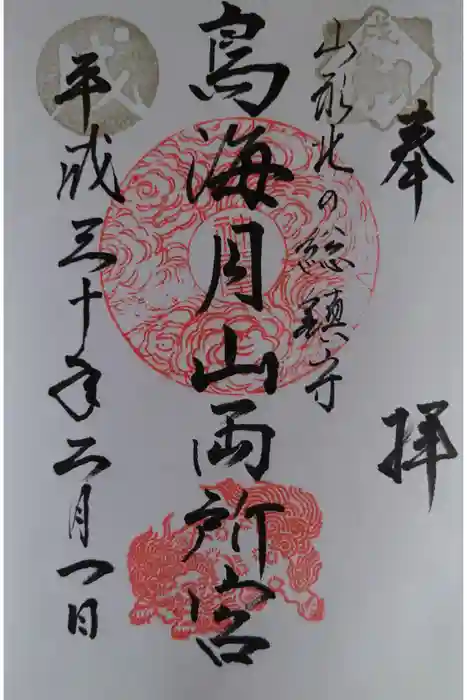 奉拝
山形北の総鎮守
鳥海月山両所宮
平成三十年二月一日
戌